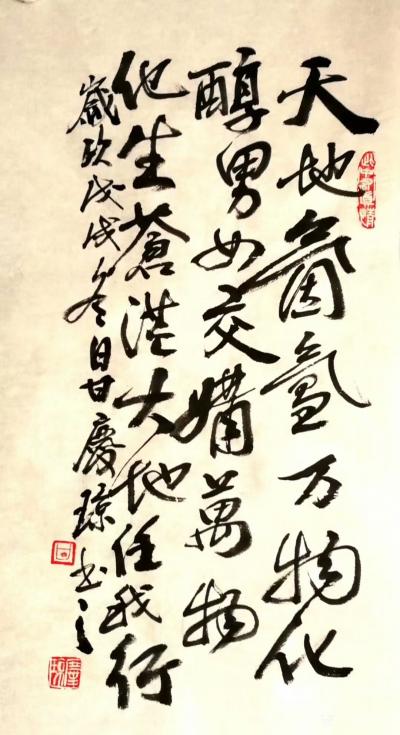 天地氤氲万物化
醇男女交媾萬物
化生蒼茫大地任我行
歲次戊戌冬日甘慶瓊书之